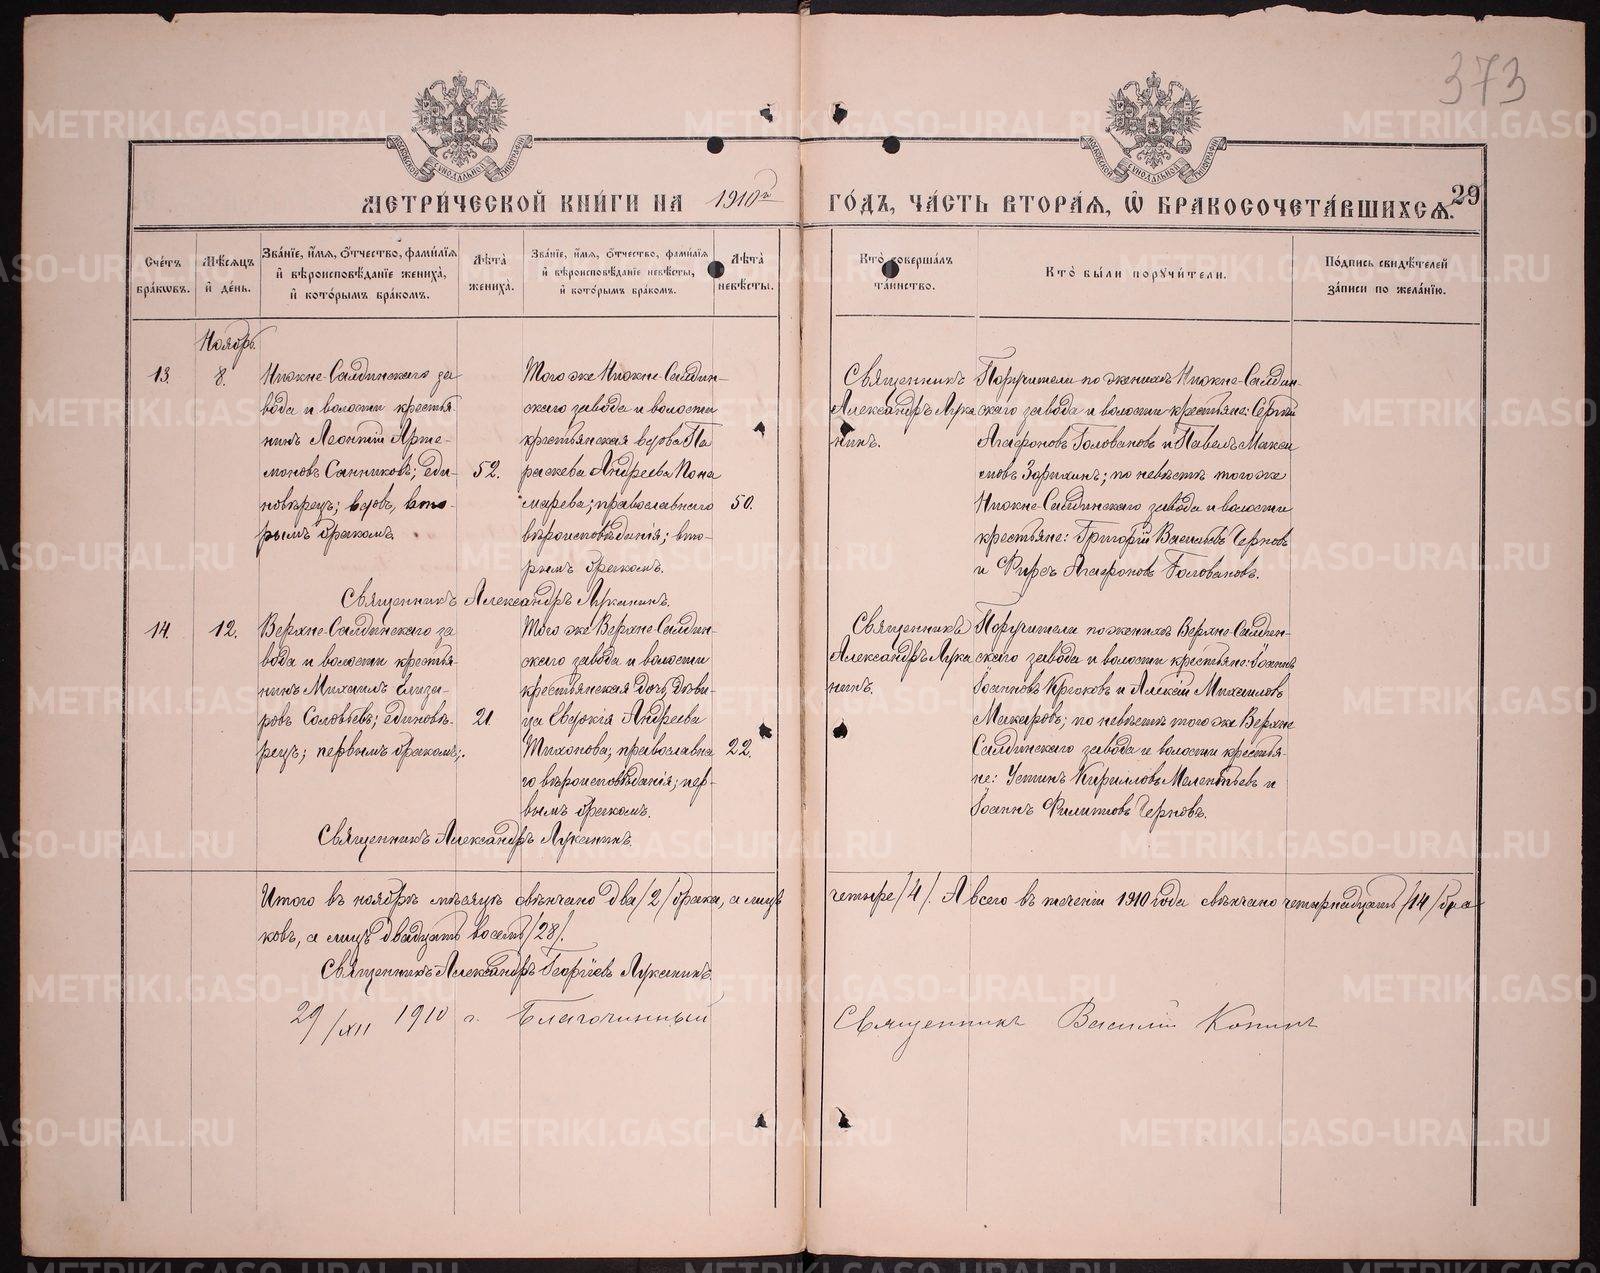 373
29
МЕТРИ́ЧЕСКОЙ КНИ́ГИ НА 1910й ГО́ДЪ, ЧА́СТЬ ВТОРА́Я, Ѡ БРАКОСОЧЕТА́ВШИХСѦ.
Сче́тъ бра́кѡвъ.
Мѣ́сѧцъ и҆ де́нь.
Зва́нїе, и҆́мѧ, ѻ҆́тчество, фами́лїѧ и҆ вѣроисповѣ́данїе жениха̀, и҆ кото́рымъ бра́комъ.
Лѣ́та жениха̀.
Зва́нїе, и҆́мѧ, ѻ҆́тчество, фами́лїѧ и҆ вѣроисповѣ́данїе невѣ́сты, и҆ кото́рымъ бра́комъ.
Лѣ́та невѣ́сты.
Кто̀ соверша́лъ та́инство.
Кто̀ бы́ли поручи́тели.
По́дпись свидѣ́телей за́писи по жела́нїю.
Ноябрь.
13.
8.
Нижне-Салдинскаго за
вода и волости крестья
нинъ Леонтій Арте-
моновъ Санниковъ; еди-
новѣрецъ; вдовъ, вто-
рымъ бракомъ.
52.
Того же Нижне-Салдин-
скаго завода и волости
крестьянская вдова Па
раскева Андреева Пона
марева; православнаго
вѣроисповѣданія; вто-
рымъ бракомъ.
50.
Священникъ
Александръ Лука
нинъ.
Поручители по женихѣ Нижне-Салдин-
скаго завода и волости крестьяне: Сергій
Агафоновъ Головановъ и Павелъ Макси
мовъ Зорихинъ; по невѣстѣ того же
Нижне-Салдинскаго завода и волости
крестьяне: Григорій Васильевъ Черновъ
и Фирсъ Агафоновъ Головановъ.
Священникъ Александръ Луканинъ.
14.
12.
Верхне-Салдинскаго за
вода и волости крестья-
нинъ Михаилъ Елиза-
ровъ Соловьевъ; единовѣ-
рецъ; первымъ бракомъ;
21.
Того же Верхне-Салдин-
скаго завода и волости
крестьянская дочь, дѣви-
ца Евдокія Андреева
Тихонова; православна
го вѣроисповѣданія; пер-
вымъ бракомъ.
22.
Священникъ
Александръ Лука
нинъ.
Поручители по женихѣ Верхне-Салдин-
скаго завода и волости крестьяне: Іоаннъ
Іоанновъ Крюковъ и Алексій Михаиловъ
Макаровъ; по невѣстѣ того же Верхне
Салдинскаго завода и волости крестья-
не: Устинъ Кирилловъ Мелентьевъ и
Іоаннъ Филиповъ Черновъ.
Священникъ Александръ Луканинъ.
Итого въ ноябрѣ мѣсяцѣ свѣнчано два /2/ брака, а лицъ четыре /4/. А всего въ теченіи 1910 года свѣнчано четырнадцать /14/ бра-
ковъ, а лицъ двадцать восемь /28/.
Священникъ Александръ Георгіевъ Луканинъ.
29/XII 1910 г. Благочинный Священникъ Василій
METRIKI.GASO-URAL.RU